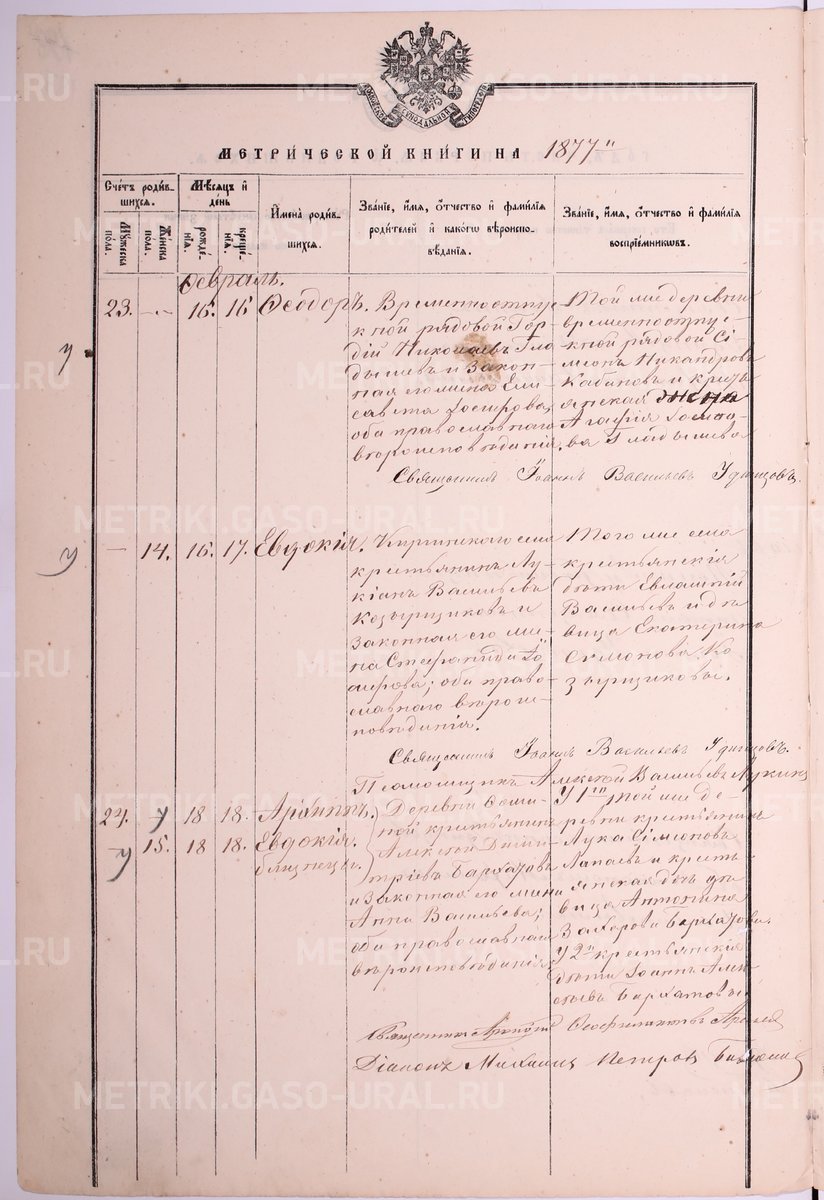 МЕТРИЧЕСКОЙ КНИГИ НА 1877
Счетъ родив-
шихся.
Мужеска
пола.
Женска
пола.
Мѣсяцъ и
день
рожде-
нія.
креще-
нія.
Имена родив-
шихся.
Званіе, имя, отчество и фамилія
родителей и какого вѣроиспо-
вѣданія.
Званіе, имя, отчество и фамилія
воспріемниковъ.
Февраль.
23. 16. 16 Ѳеодоръ.
Временноотпус-
кной рядовой Гор-
дій Николаевъ Гла-
дышевъ и закон-
ная его жена Ели-
савета Іосифова,
оба православнаго
вѣроисповѣданія.
Той же деревни
временноотпус-
кной рядовой Сі-
меонъ Никандровъ
Кабановъ и кресть-
янская жена
Агафія
ва Гладышева
Священникъ Іоаннъ Васильевъ Удинцовъ.
14. 16. 17. Евдокія.
села
крестьянинъ Лу-
кіанъ Васильевъ
Козырщиковъ и
законная его же-
на Стефанида
оба право-
славнаго вѣроис-
повѣданія.
Того же села
крестьянскія
дѣти Евлампій
Васильевъ и дѣ-
вица Екатерина
Симонова Ко-
зырщиковы.
Священникъ Іоаннъ Васильевъ Удинцовъ.
Псаломщикъ Алексѣй Васильевъ Лукинъ
24. 18 18. Архиппъ.
15. 18 18. Евдокія.
близнецы.
Деревни
крестьянинъ
Алексѣй Дими-
тріевъ Бархатовъ
и законная его жена
Анна Васильева;
оба православнаго
вѣроисповѣданія
У 1го той же де-
ревни крестьянинъ
Лука Сімеоновъ
Лапаевъ и кресть-
янская дочь дѣ-
вица Антонина
Захарова Бархатова.
У 2й крестьянскія
дѣти Іоаннъ Алек-
сѣевъ Бархатовы.
Священникъ
Діаконъ Михаилъ Петровъ